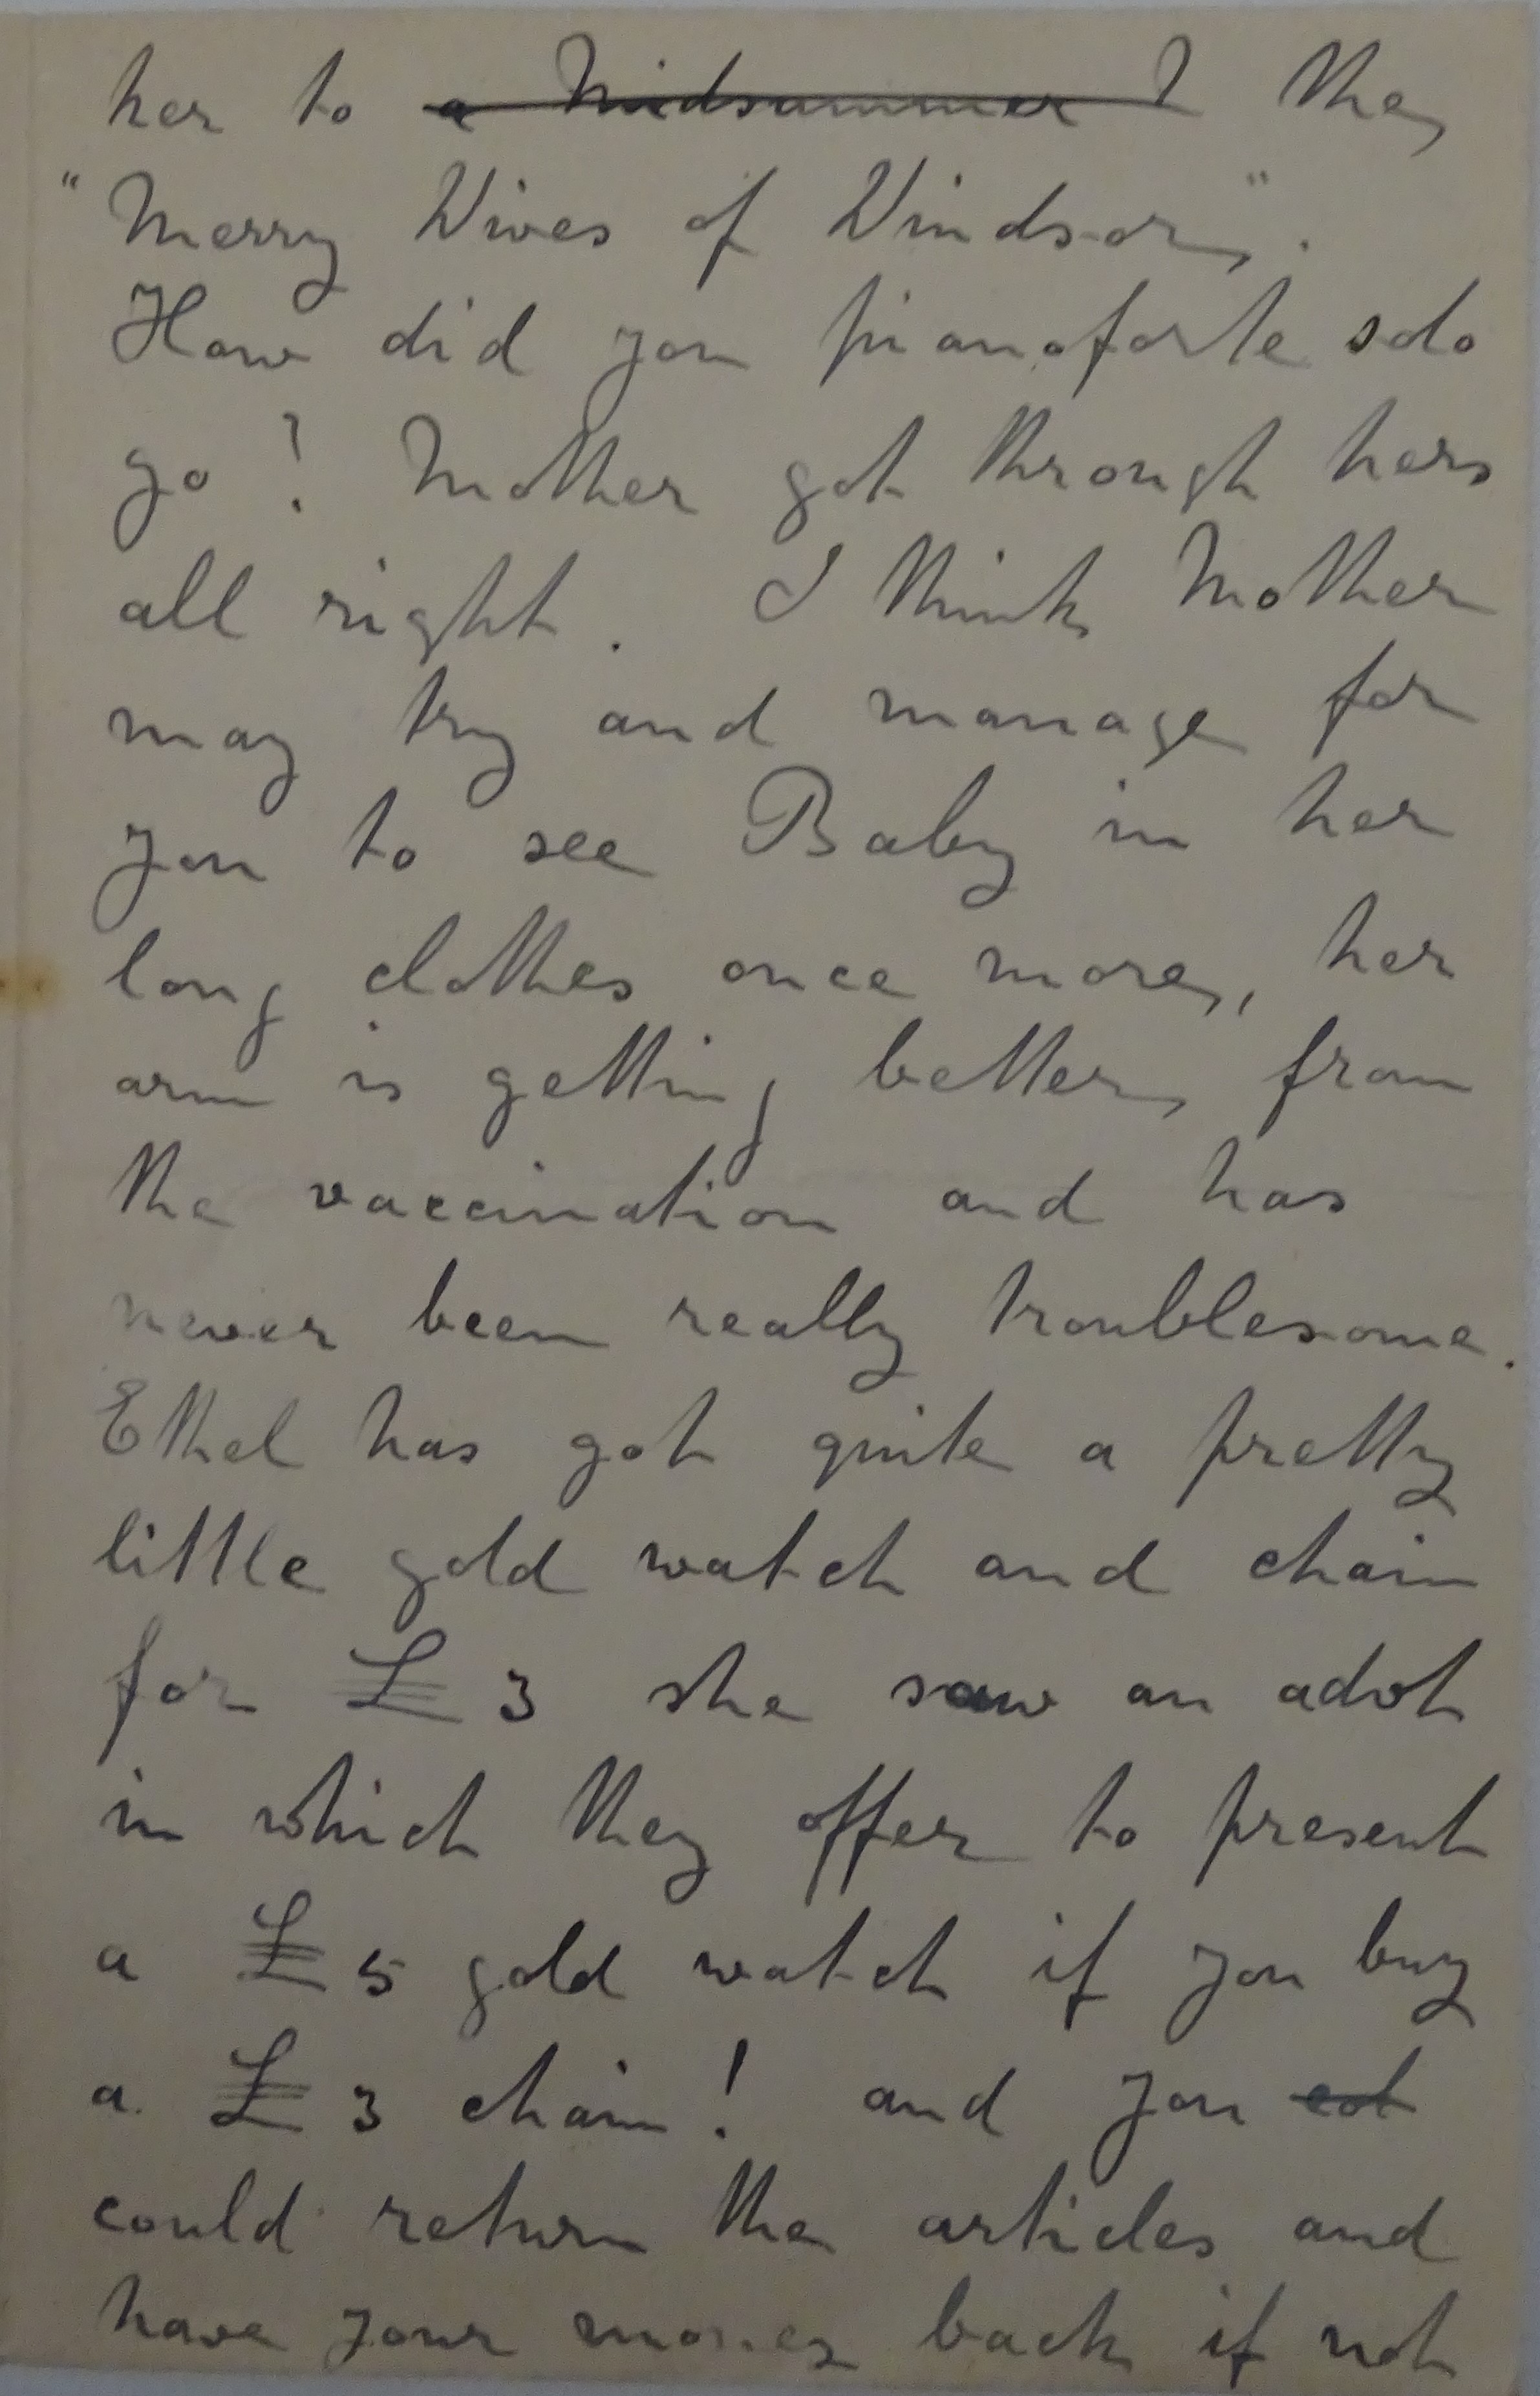 her to a Midsummer ? the
"Merry Wives of Windsor".
How did you pianoforte solo
go? Mother got through hers
all right. I think Mother
may try and manage for
you to see Baby in her
long clothes once more, her
arm is getting better from
the vaccination and has
never been really troublesome.
Ethel has got quite a pretty
little gold watch and chain
for £3 she saw an advt
in which they offer to present
a £5 gold watch if you buy
a £3 chain! and you
could return the articles and
have your money back if not